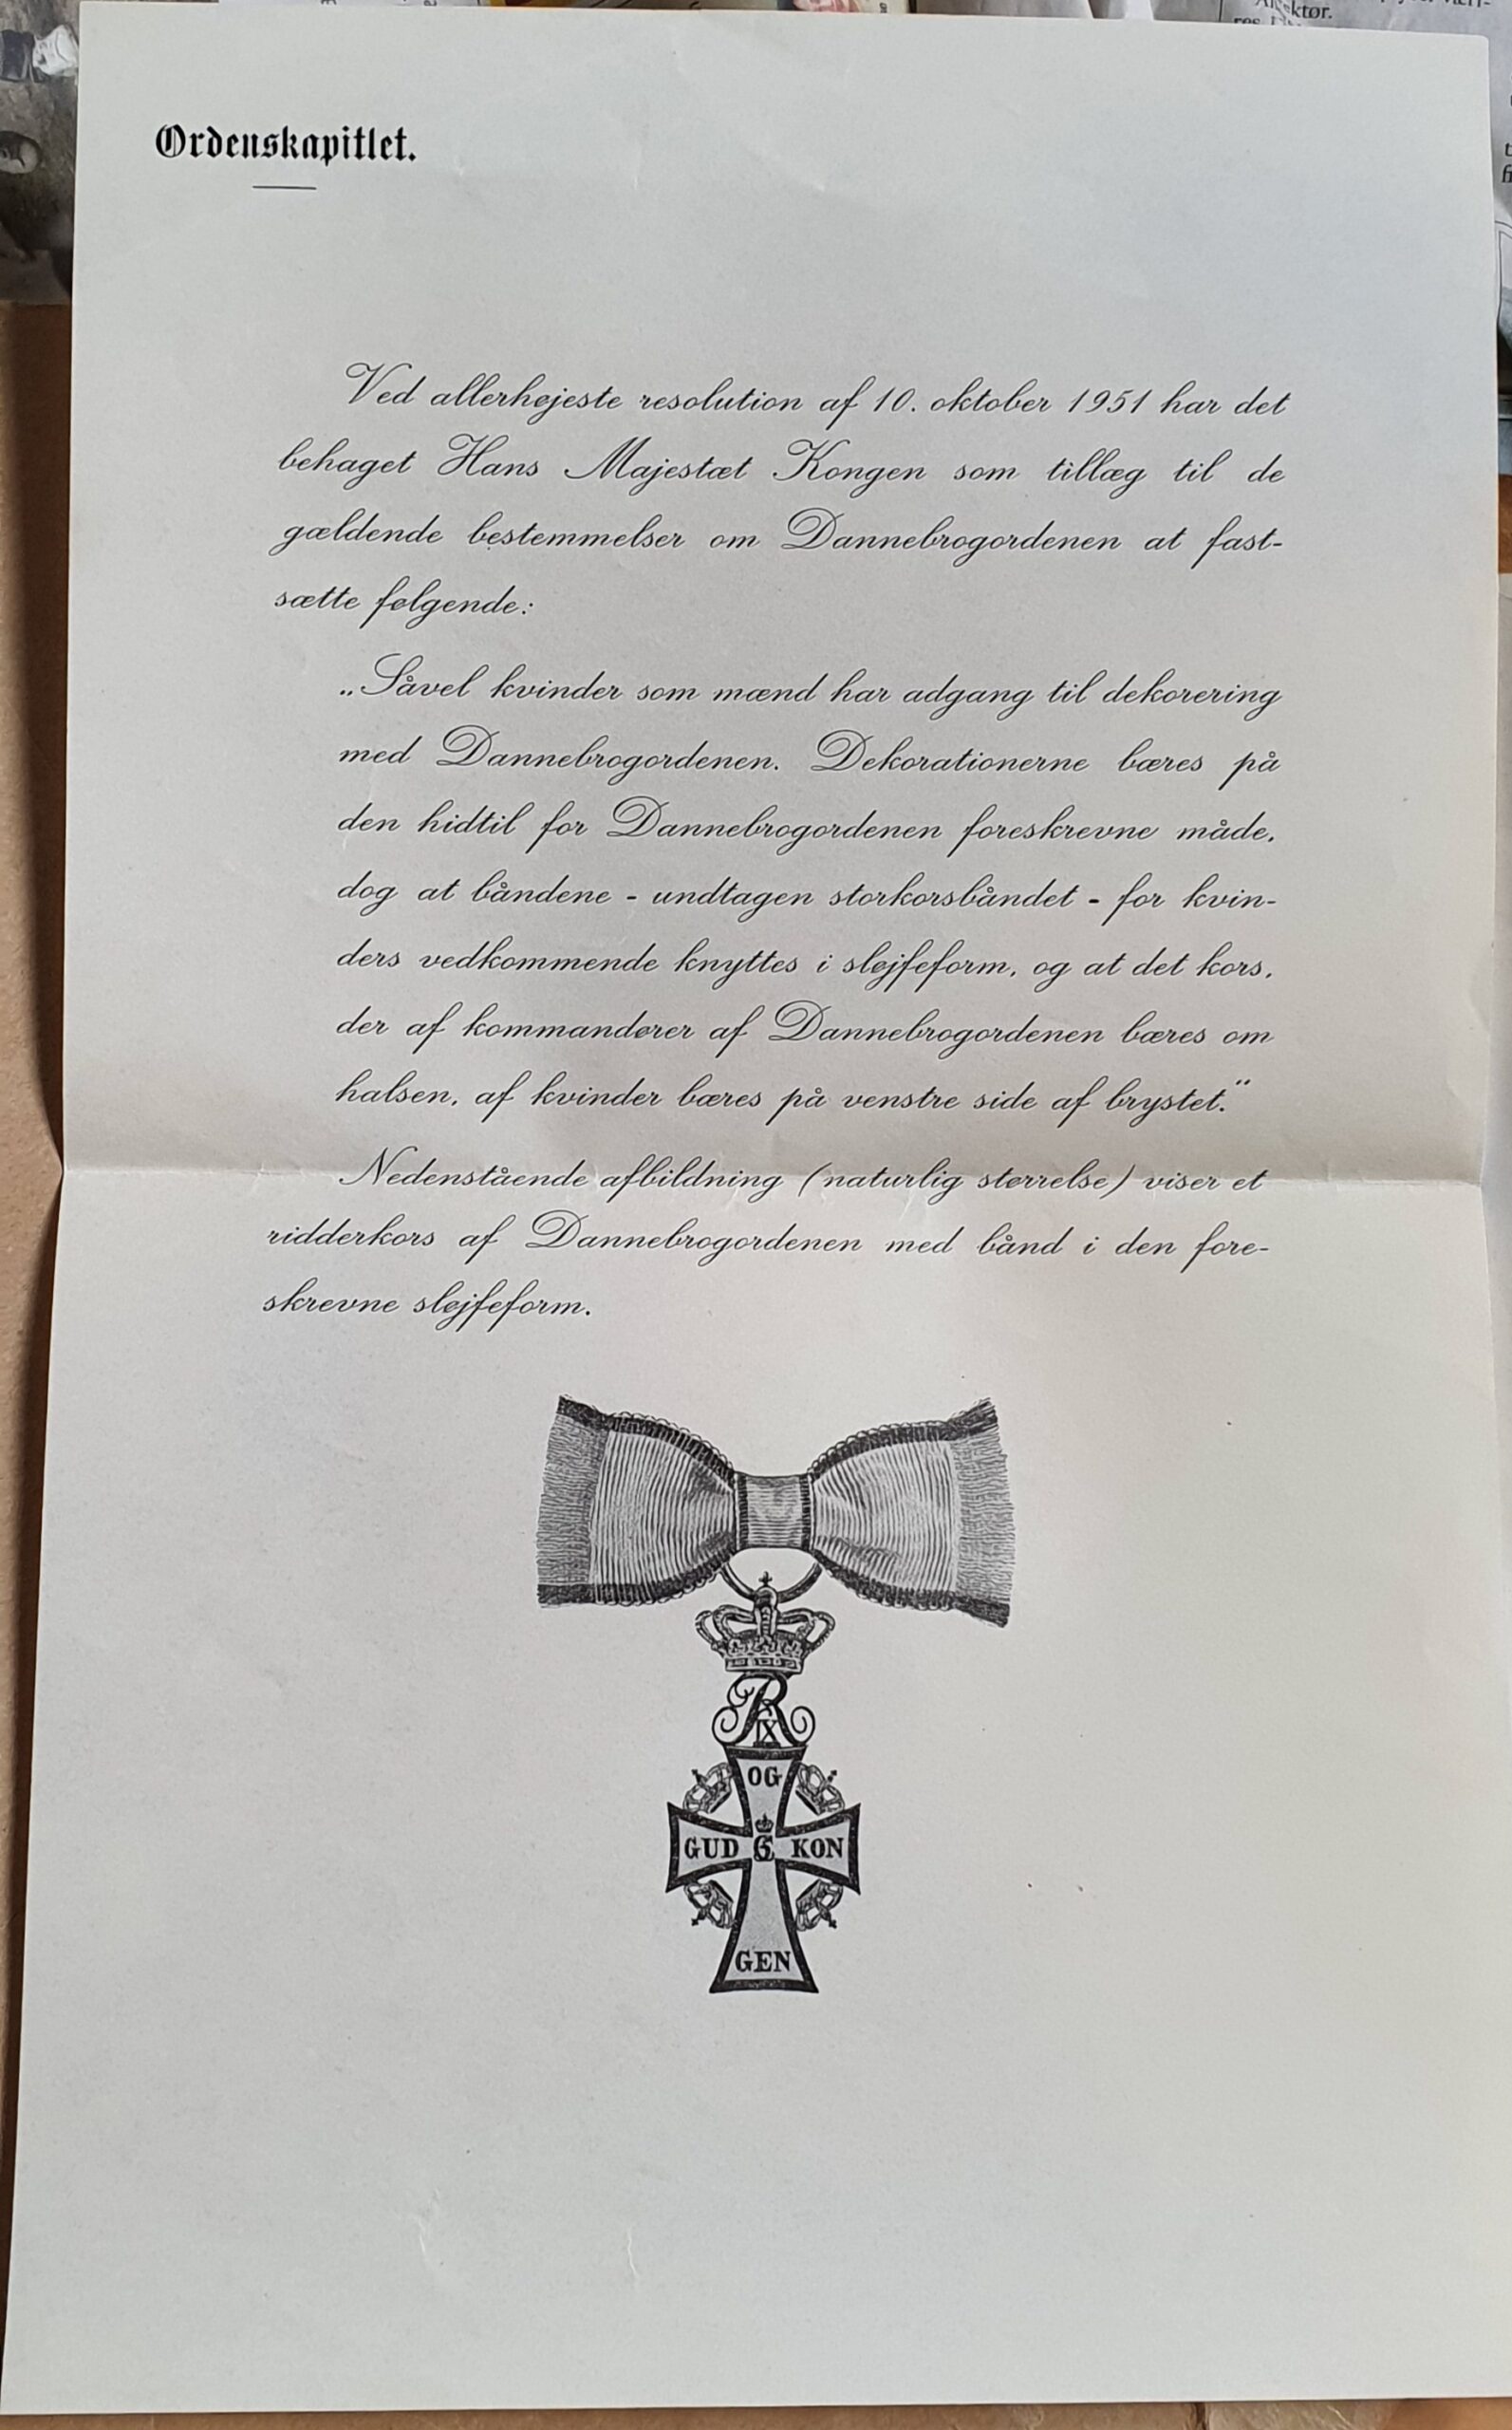 Ordenskapitlet.
Ved allerhøjeste resolution af 10. oktober 1951 har det
behaget Hans Majestæt Kongen som tillæg til de
gældende bestemmelser om Dannebrogordenen at fast-
sætte følgende:
„Såvel kvinder som mænd har adgang til dekorering
med Dannebrogordenen. Dekorationerne bæres på
den hidtil for Dannebrogordenen foreskrevne måde,
dog at båndene - undtagen storkorsbåndet - for kvin-
ders vedkommende knyttes i sløjfeform, og at det kors,
der af kommandører af Dannebrogordenen bæres om
halsen, af kvinder bæres på venstre side af brystet.“
Nedenstående afbildning (naturlig størrelse) viser et
ridderkors af Dannebrogordenen med bånd i den fore-
skrevne sløjfeform.
R
IX
OG
GUD KON
GEN
ktør.